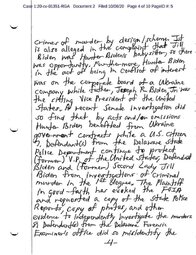 Case 1:20-cv-01351-RGA Document 2 Filed 10/06/20 Page 4 of 19 PageID #: 5
crimes of murder by design/scheme. Yet
is also alleged in the complaint, that Jill
Biden was Hunter Biden's babysitter so there
was opportunity. Furthermore, Hunter Biden
in the act of being in conflict of interest
was on the corporate board of a Ukraine
company while father, Joseph R. Biden, Jr. was
the sitting Vice President of the United
States. A recent Senate Investigation did
so find that by acts and/or omissions
Hunter Biden benefited from Ukraine
government contracts while a U.S. citizen
Defendant(s) from the Delaware State
Police Department continue to protect
(former) V.P. of the United States, Defendant
Biden and (former) Second Lady Jill
Biden from investigations of Criminal
murder in the 1st Degree. The Plaintiff
in Good-faith has evoked the FOIA
and requested a copy of the State Police
Reports, copy of photos, and other
evidence to independently investigate the murders
Defendant(s) from the Delaware Forensic
Examiner's office did so misidentify the
-4-